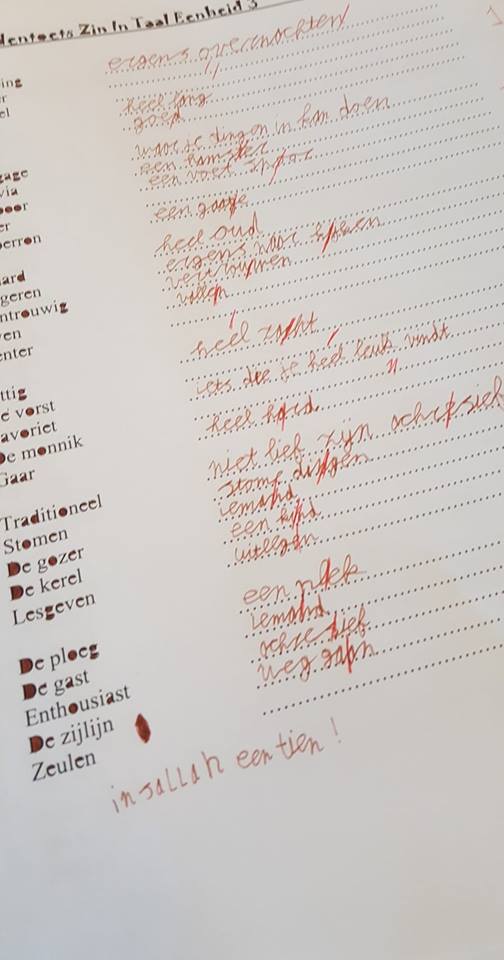 dentoets Zin In Taal Eenheid 3
ing ergens overnachten
r
el heel lang
goed
waar je dingen in kan doen
gage een hamster
via een voet
poor
er een
erron
heel oud
ard ergens naar
geren
ntrouwig vallen
en
nter
heel zacht
ttig
e vorst iets die je heel leuk vindt
avoriet
De monnik heel hard
Gaar
niet lief zijn
Traditioneel stome dingen
Stomen iemand
De gozer een kind
De kerel uitlegen
Lesgeven
een plek
De ploeg iemand
De gast
Enthousiast weg gaan
De zijlijn
Zeulen
insallah een tien!